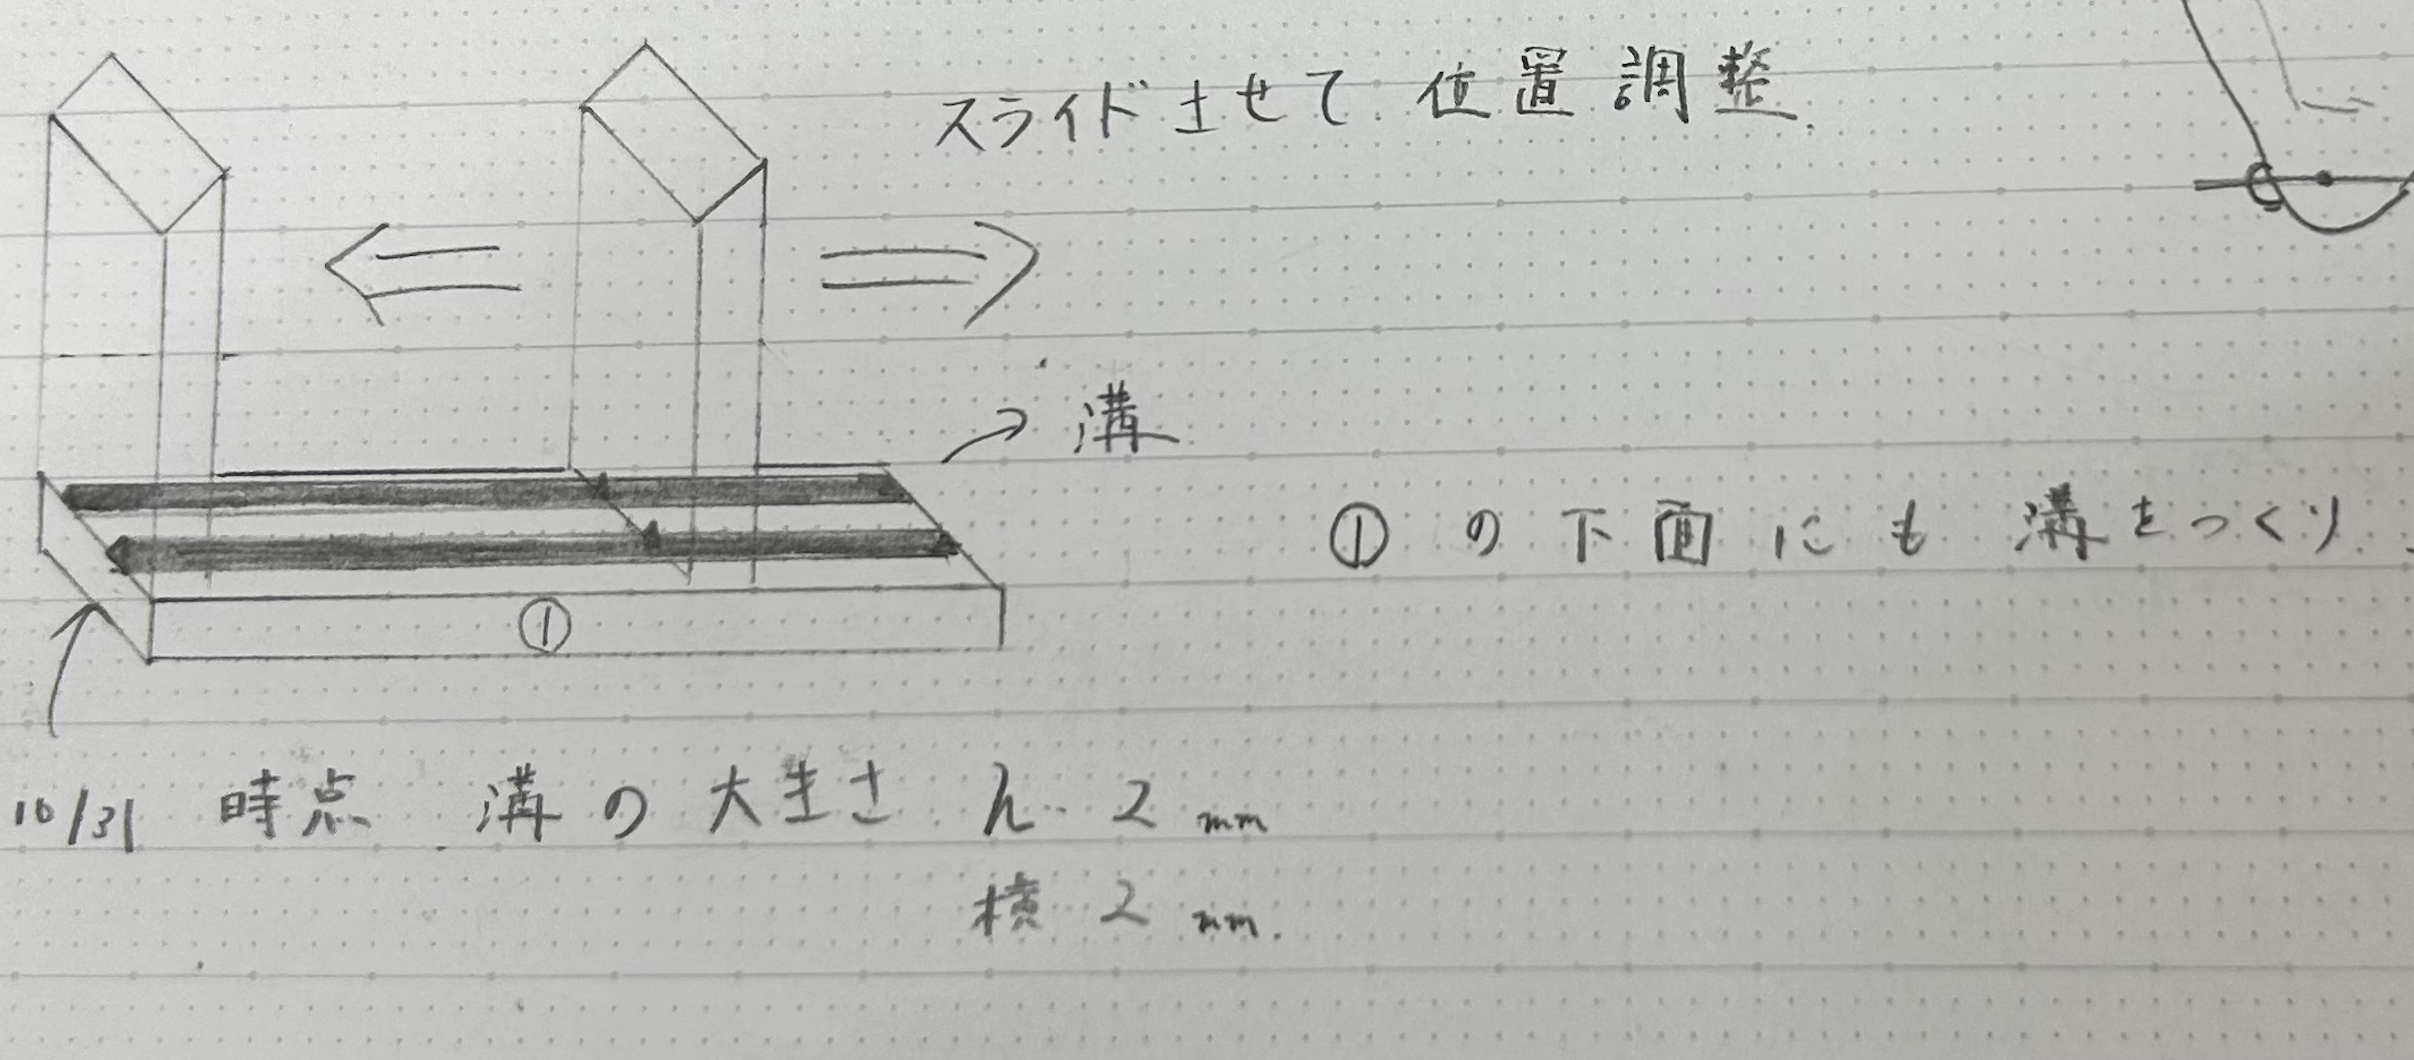 スライドさせて位置調整.
溝
①の下面にも溝をつくり
①
10/31 時点 溝の大きさ h 2mm
横 2mm.